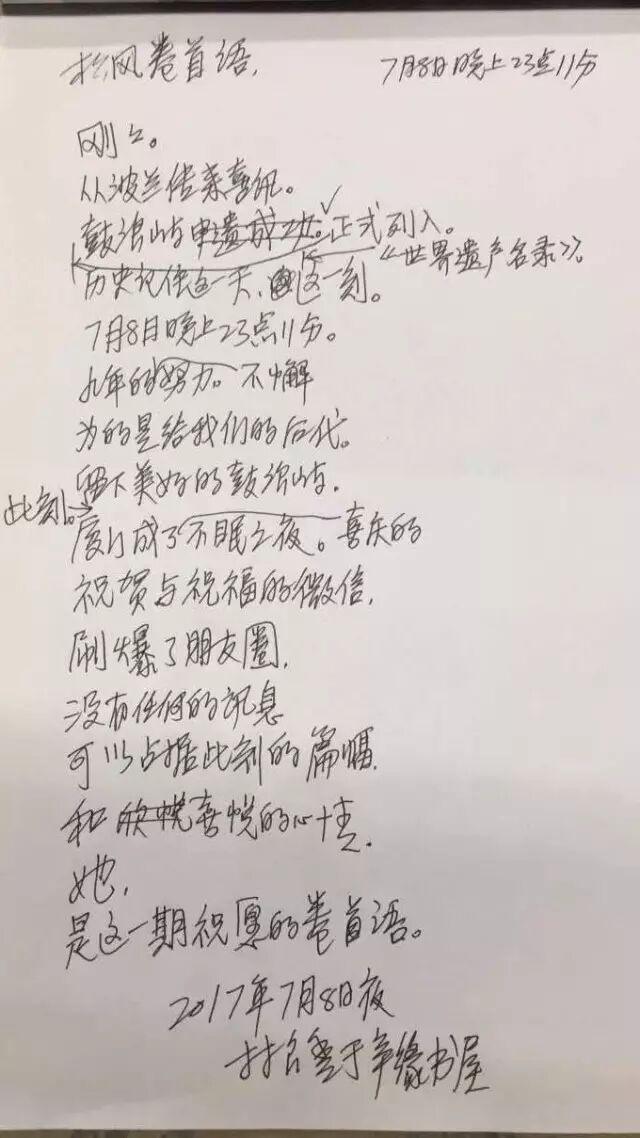 松风卷首语, 7月8日晚上23点11分
刚刚。
从波兰传来喜讯。
鼓浪屿申遗成功。正式列入
《世界遗产名录》。
历史记住这一天、这一刻。
7月8日晚上23点11分。
九年的努力。不懈
为的是给我们的后代。
留下美好的鼓浪屿.
此刻。
厦门成了不眠之夜。喜庆的
祝贺与祝福的微信,
刷爆了朋友圈,
没有任何的讯息
可以占据此刻的篇幅,
和欣悦喜悦的心情.
她,
是这一期祝愿的卷首语。
2017年7月8日夜
于辛缘书屋